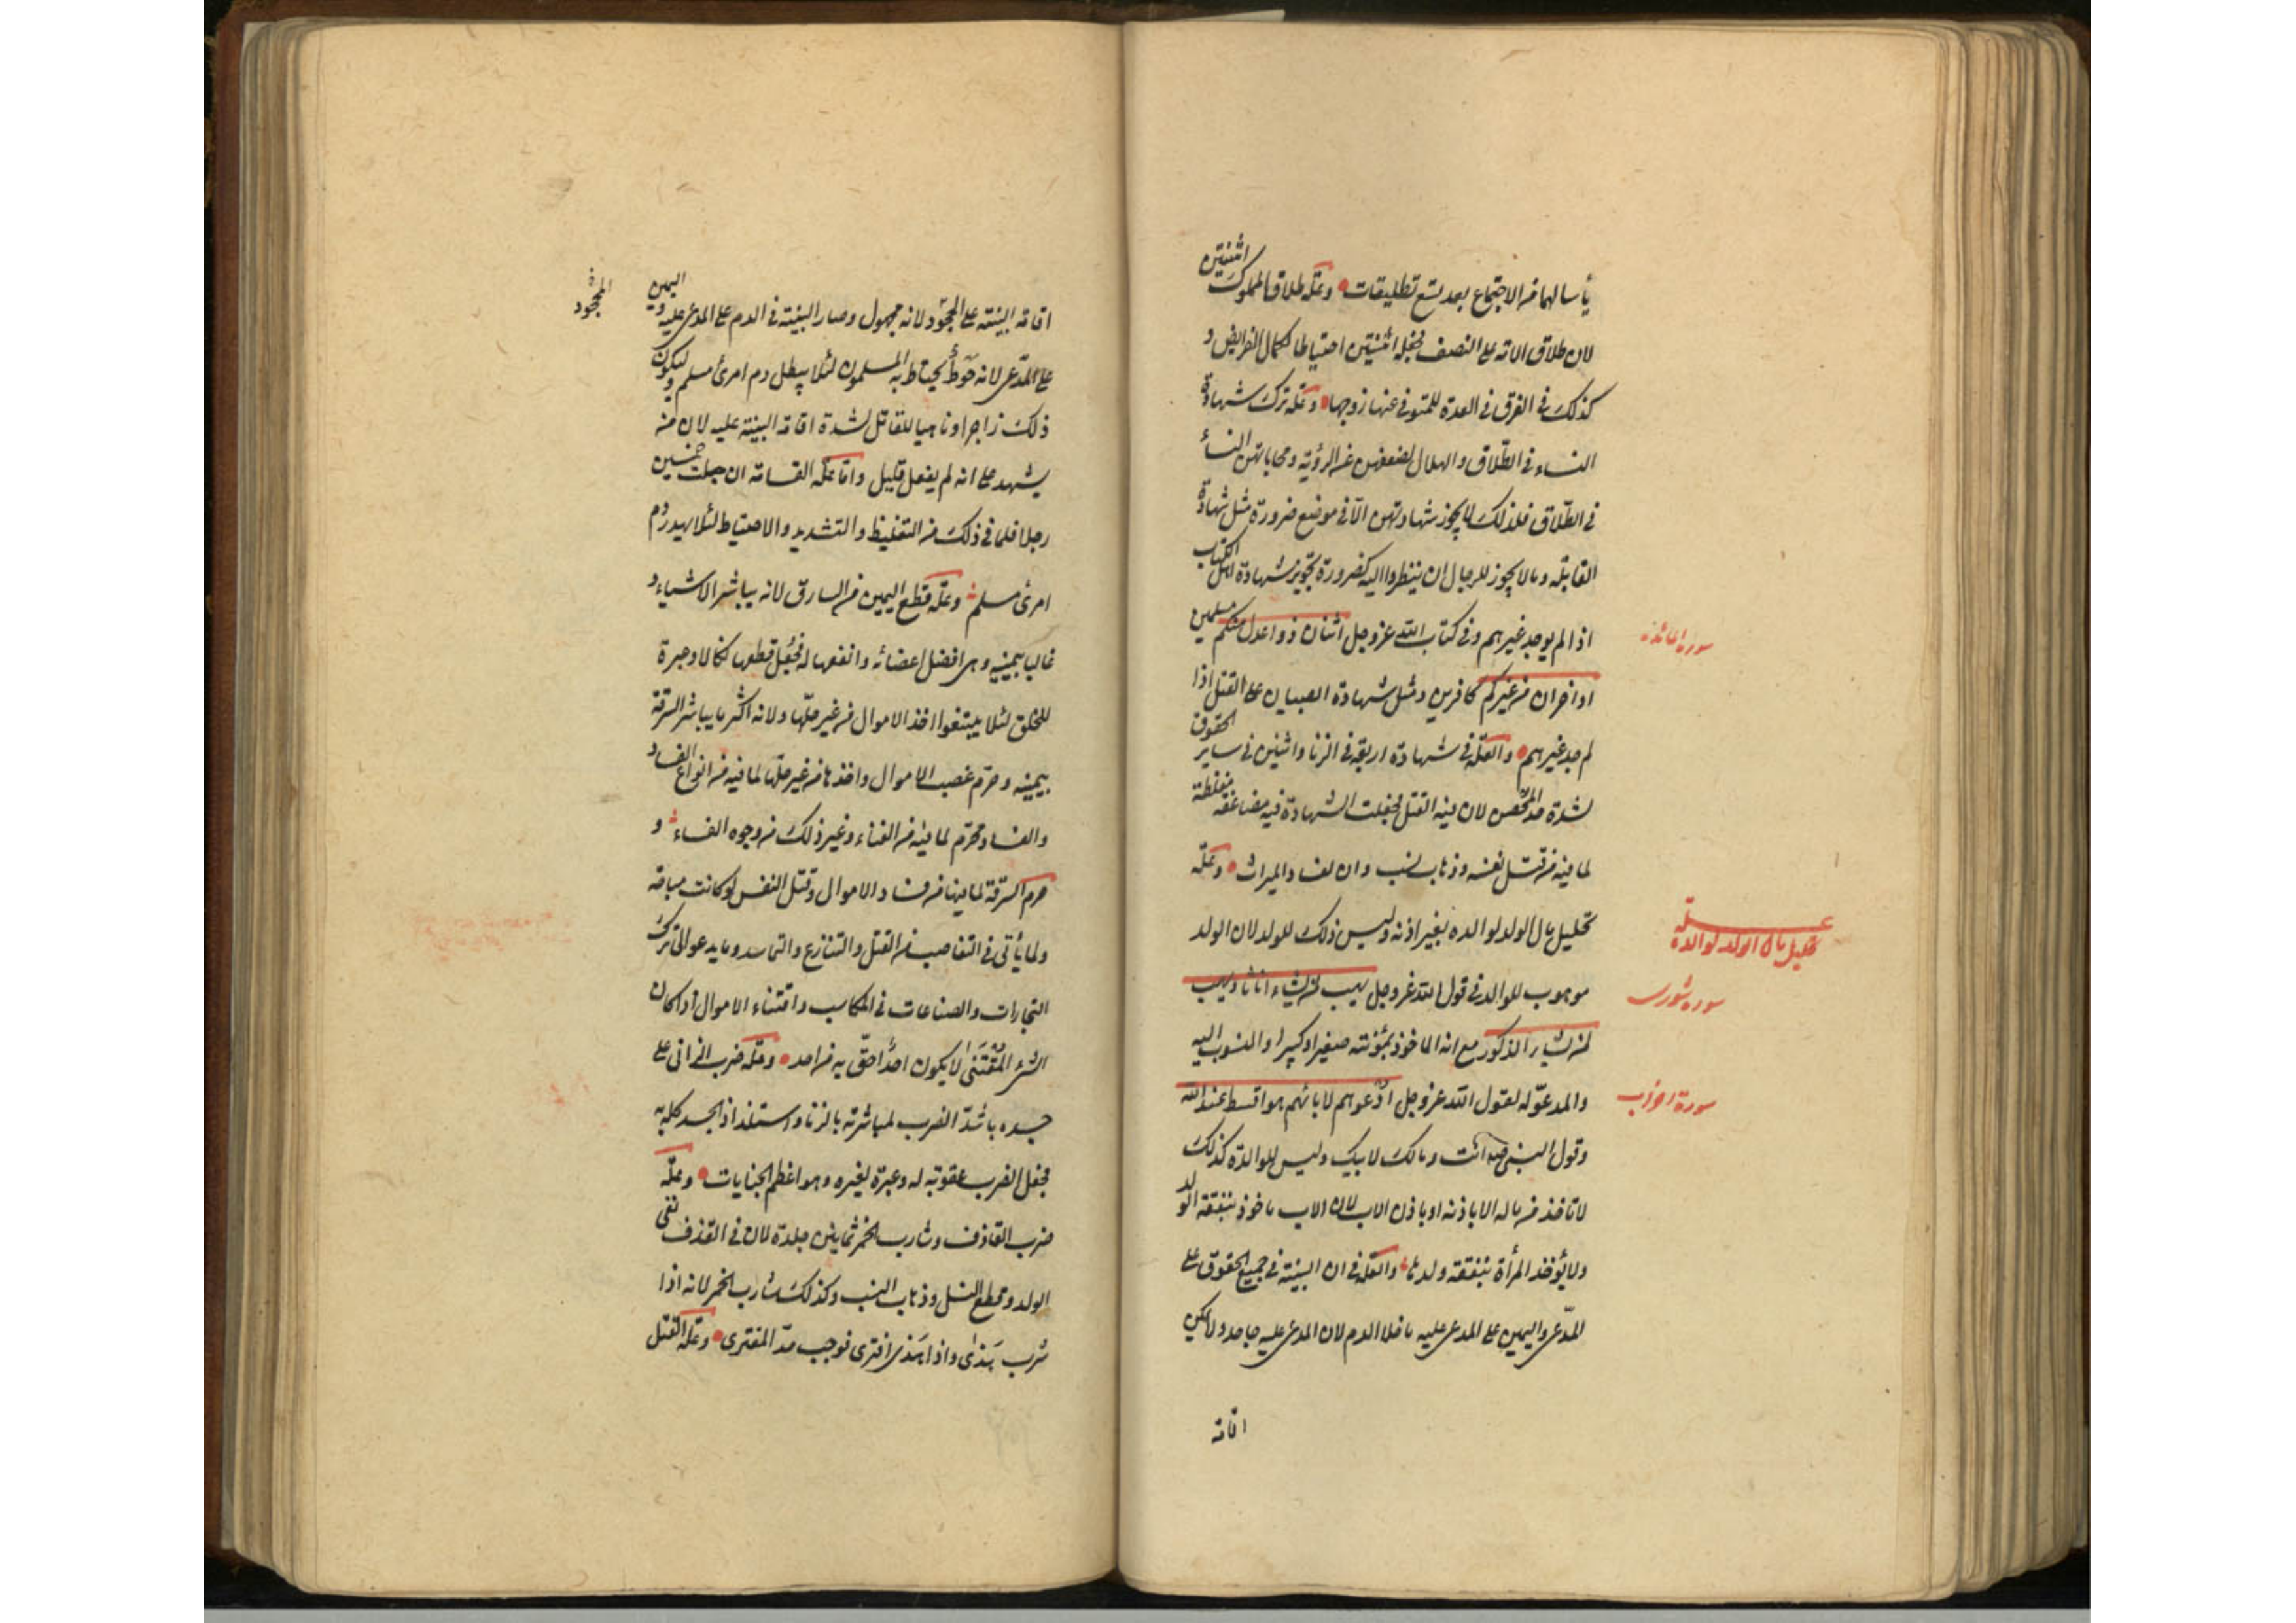 يأسا لهما من الاجتماع بعد تسع تطليقات وعلّة طلاق المملوك اثنتين
لان طلاق الامة على النصف فجعله اثنتين احتياطا لكمال الفرايض و
كذلك في الفرق في العدة للمتوفى عنها زوجها وعلة ترك شهادة
النساء في الطّلاق والهلال لضعفهن عن الرؤية ومحاباتهن النساء
في الطّلاق فلذلك لا يجوز شهادتهن الّا في موضع ضرورة مثل شهادة
القابلة وما لا يجوز للرجال ان ينظروا اليه كضرورة تجويز شهادة اهل الكتاب
اذا لم يوجد غيرهم وفي كتاب الله عز وجل اثنان ذوا عدل منكم مسلمين
سورة المائدة
او اخران من غيركم كافرين ومثل شهادة الصبيان على القتل اذا
لم يوجد غيرهم والعلّة في شهادة اربعة في الزنا واثنين في ساير الحقوق
لشدة حد المحصن لان فيه القتل فجعلت الشهادة فيه مضاعفة مغلظة
لما فيه من قتل نفسه وذهاب نسب ولده ولفساد الميراث وعلّة
تحليل مال الولد لوالده بغير اذنه وليس ذلك للولد لان الولد
علّة تحليل مال الولد لوالده
موهوب للوالد في قول الله عز وجل يهب لمن يشاء اناثا ويهب
سوره شورى
لمن يشاء الذكور مع انه الماخوذ بمؤنته صغيرا وكبيرا والمنسوب اليه
والمدعوّ له لقول الله عز وجل ادعوهم لابائهم هو اقسط عند الله
سورة احزاب
وقول النبي ص انت ومالك لابيك وليس للوالدة كذلك
لا تاخذ من ماله الا باذنه او باذن الاب لان الاب ماخوذ بنفقة الولد
ولا يؤخذ المرأة بنفقة ولدها والعلّة في ان البينة في جميع الحقوق على
المدّعي واليمين على المدعى عليه ما خلا الدم لان المدعى عليه جاحد ولا يمكن
اقامة
اقامة البينة على الجحود لانه مجهول وصار البينة في الدم على المدعى عليه واليمين
الجحود
على المدّعي لانه حوط يحتاط به المسلمون لئلا يبطل دم امرئ مسلم وليكون
ذلك زاجرا وناهيا للقاتل لشدة اقامة البينة عليه لان من
يشهد على انه لم يفعل قليل وامّا علّة القسامة ان جعلت خمسين
رجلا فلما في ذلك من التغليظ والتشديد والاحتياط لئلا يهدر دم
امرئ مسلم وعلّة قطع اليمين من السارق لانه يباشر الاشياء
غالبا بيمينه وهي افضل اعضائه وانفعها له فجعل قطعها نكالا وعبرة
للخلق لئلا يبتغوا اخذ الاموال من غير حلّها ولانه اكثر ما يباشر السرقة
بيمينه وحرّم غصب الاموال واخذها من غير حلّها لما فيه من انواع الفساد
والفساد محرّم لما فيه من الفناء وغير ذلك من وجوه الفساد و
حرم السرقة لما فيها من فساد الاموال وقتل النفس لو كانت مباحة
ولما يأتي في التغاصب من القتل والتنازع والتحاسد وما يدعو الى ترك
التجارات والصناعات في المكاسب واقتناء الاموال اذا كان
الشئ المقتنى لا يكون احد احقّ به من احد وعلّة ضرب الزاني على
جسده باشدّ الضرب لمباشرته بالزنا واستلذاذ الجسد كله به
فجعل الضرب عقوبة له وعبرة لغيره وهو اعظم الجنايات وعلّة
ضرب القاذف وشارب الخمر ثمانين جلدة لان في القذف نفي
الولد وقطع النسل وذهاب النسب وكذلك شارب الخمر لانه اذا
شرب هذى واذا هذى افترى فوجب حدّ المفتري وعلّة القتل